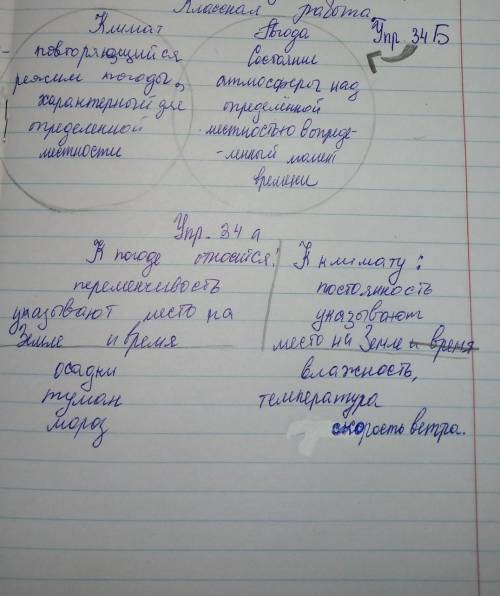 Классная работа.
Упр. 34Б
Климат
повторяющийся
режим погоды,
характерный для
определенной
местности
Погода
Состояние
атмосферы над
определённой
местностью в опреде-
-ленный момент
времени
Упр. 34 а
К погоде относится:
переменчивость
указывают место на
Земле и время
осадки
туман
мороз
К климату:
постоянность
указывают
место на Земле и время
влажность,
температура
скорость ветра.